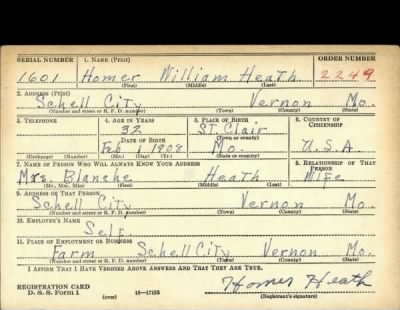 SERIAL NUMBER 1. NAME (Print) ORDER NUMBER
1601 Homer William Heath 2249
(First) (Middle) (Last)
2. ADDRESS (Print)
Schell City Vernon Mo.
(Number and street or R. F. D. number) (Town) (County) (State)
3. TELEPHONE 4. AGE IN YEARS 5. PLACE OF BIRTH 6. COUNTRY OF CITIZENSHIP
32 St. Clair
DATE OF BIRTH (Town or county)
Feb 1 1908 Mo. U.S.A
(Exchange) (Number) (Mo.) (Day) (Yr.) (State or country)
7. NAME OF PERSON WHO WILL ALWAYS KNOW YOUR ADDRESS 8. RELATIONSHIP OF THAT PERSON
Mrs. Blanche Heath Wife
(Mr., Mrs., Miss) (First) (Middle) (Last)
9. ADDRESS OF THAT PERSON
Schell City Vernon Mo.
(Number and street or R. F. D. number) (Town) (County) (State)
10. EMPLOYER'S NAME
Self
11. PLACE OF EMPLOYMENT OR BUSINESS
Farm Schell City Vernon Mo
(Number and street or R. F. D. number) (Town) (County) (State)
I AFFIRM THAT I HAVE VERIFIED ABOVE ANSWERS AND THAT THEY ARE TRUE.
Homer Heath
REGISTRATION CARD
D. S. S. Form 1 (over) 16—17105 (Registrant's signature)